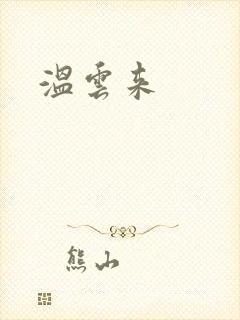 溫雲来
熊山